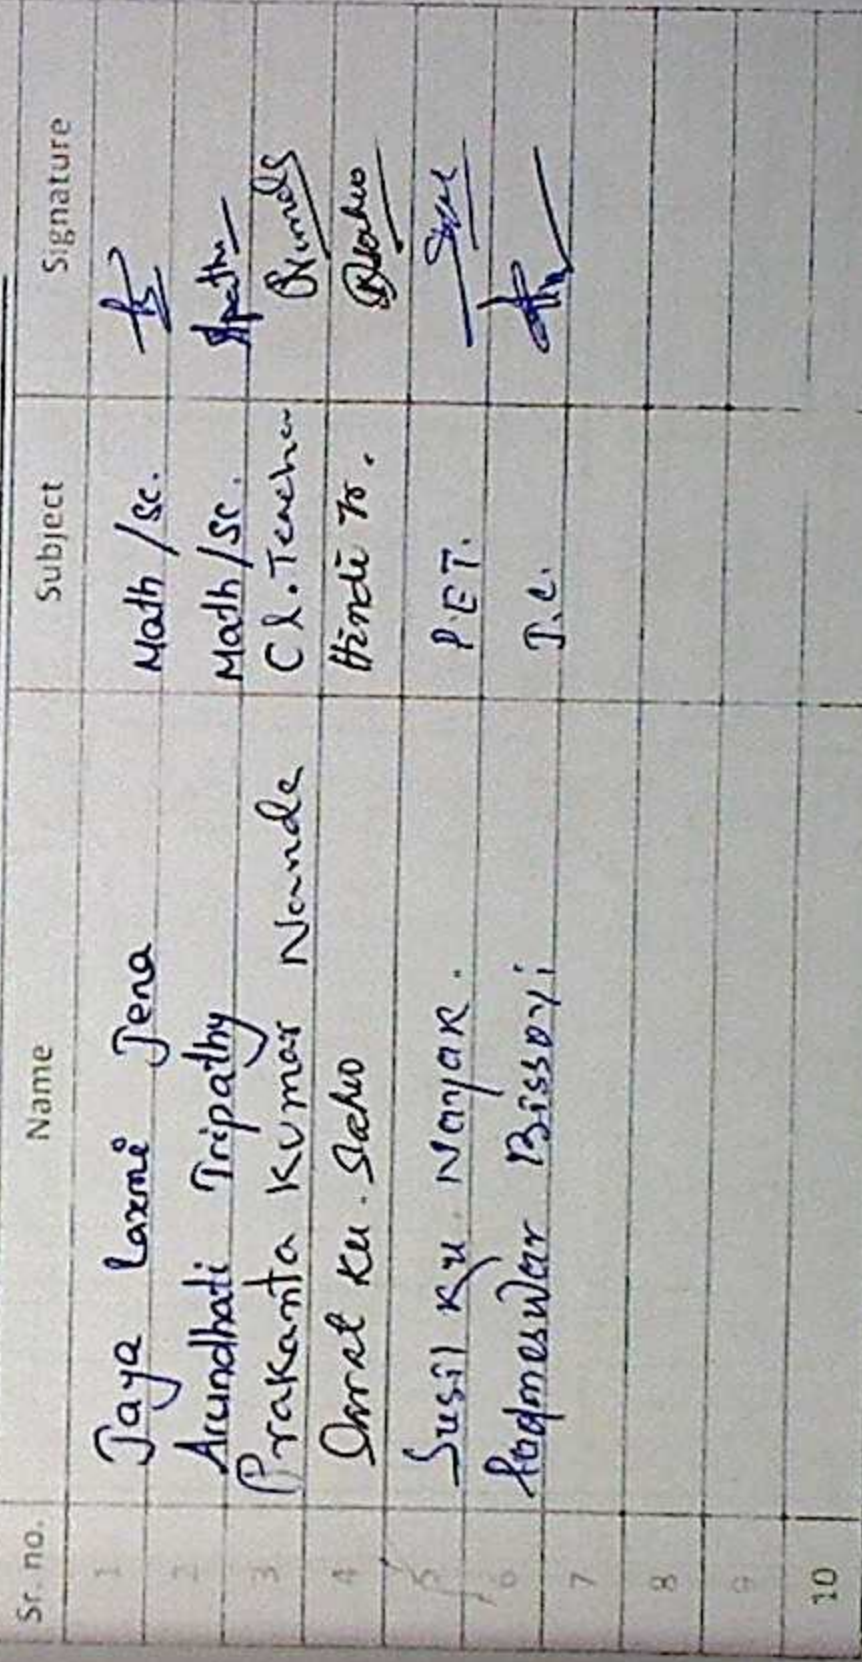 Sr. no. Name Subject Signature
1 Jaya Laxmi Jena Math/Sc.
2 Arundhati Tripathy Math/Sc.
3 Prakanta Kumar Nanda Cl. Teacher
4 Ku. Sahu Hindi Tr. Sahu
5 Susil Ku. Nayak. P.E.T.
6 Bissoyi
7
8
9
10